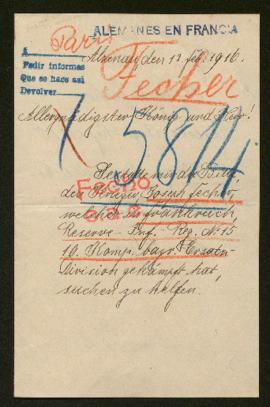 ALEMANES EN FRANCIA
París
A
Pedir informes
Que se hace así
Devolver
Alzenau, den 13. Feb. 1916.
Fecher
Allergnädigster König und Herr!
5814
Gestatte mir die Bitte
den Krieger Joseph Fecher,
welcher in Frankreich,
Reserve-Inf. Reg. No 15
10. Komp. bayr. Ersatz-
Division gekämpft hat,
suchen zu helfen.